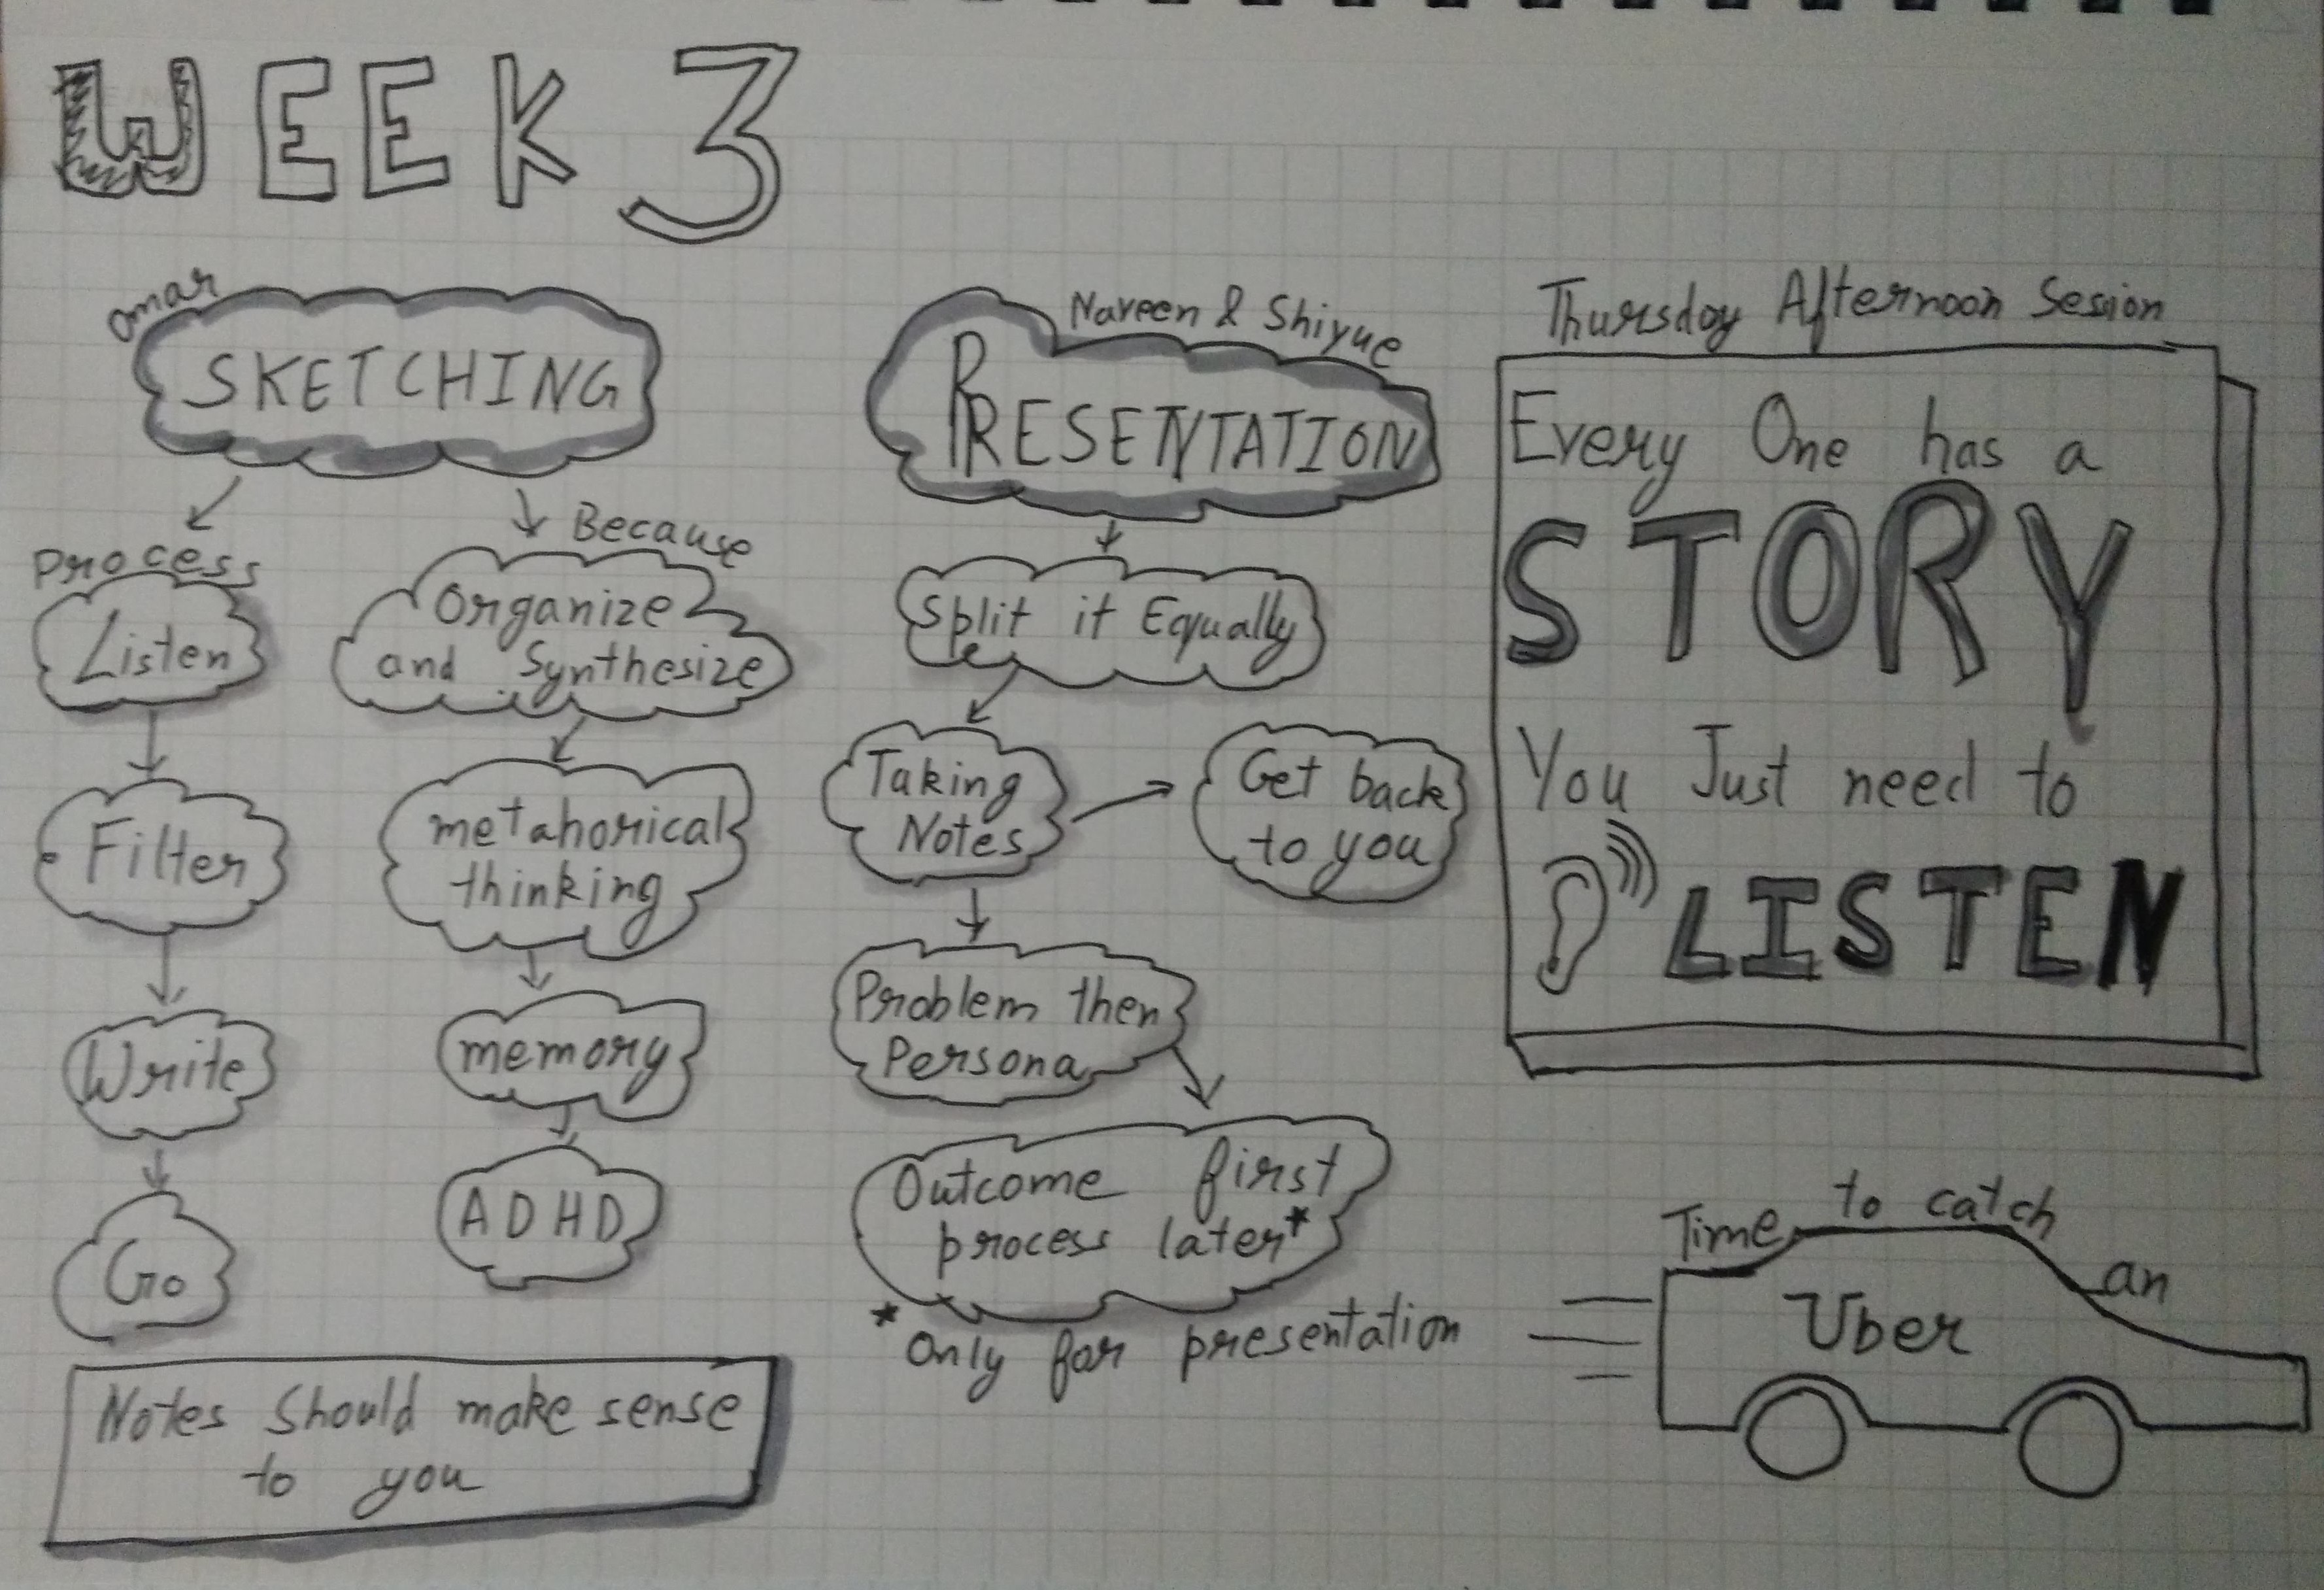 WEEK 3
Omar
SKETCHING
Process
Listen
Filter
Write
Go
Because
Organize
and Synthesize
metahorical
thinking
memory
ADHD
Notes Should make sense
to you
Naveen & Shiyue
PRESENTATION
Split it Equally
Taking
Notes
Get back
to you
Problem then
Persona
Outcome first
process later*
* Only for presentation
Thursday Afternoon Session
Every One has a
STORY
You Just need to
LISTEN
Time to catch an
Uber